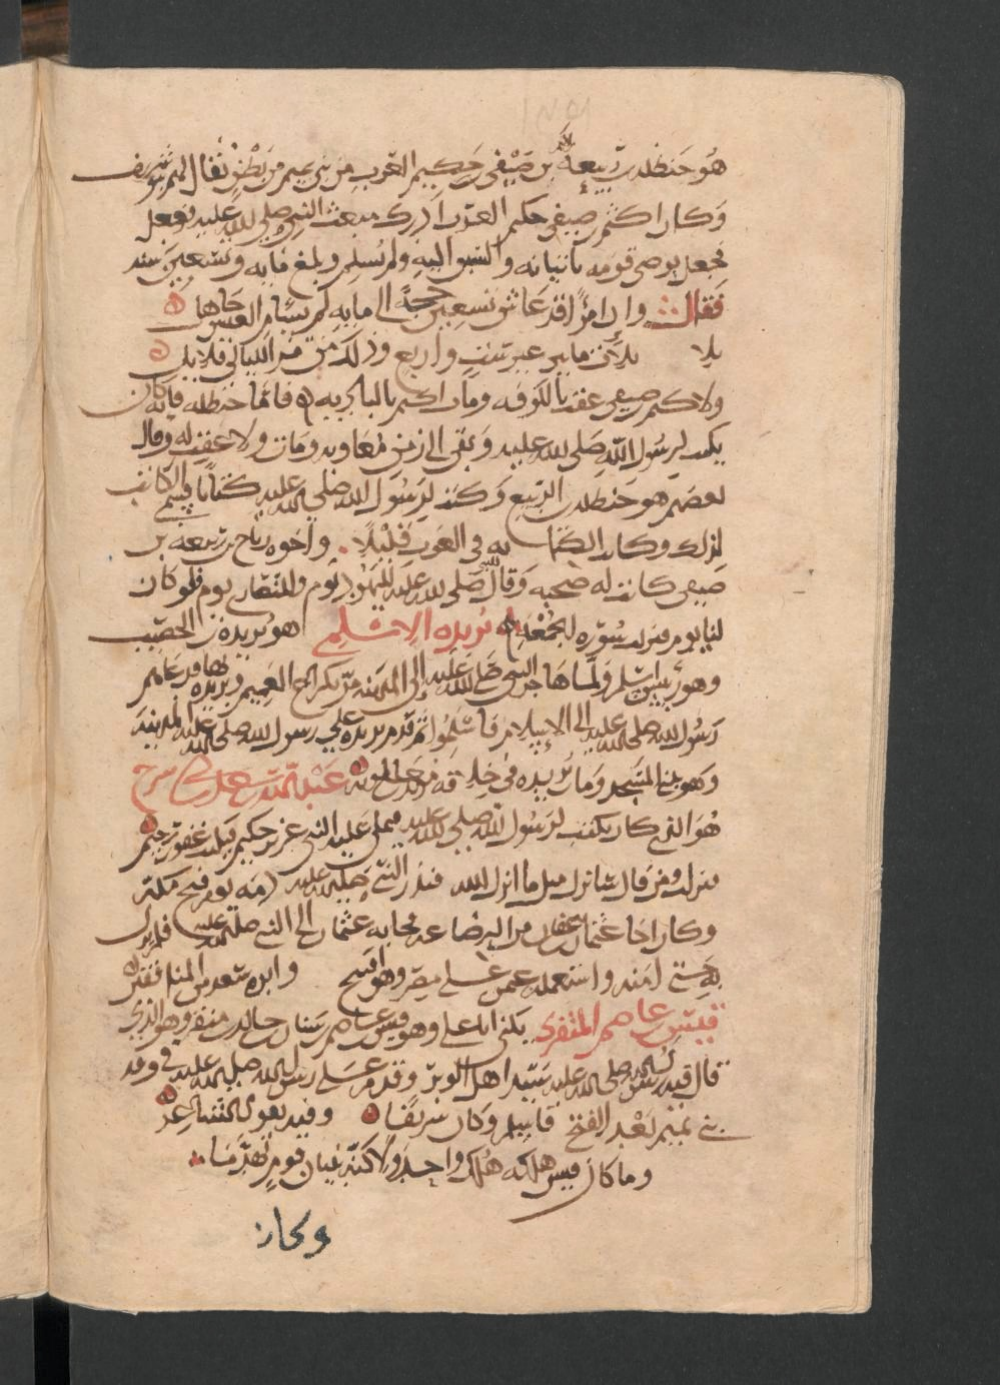 هو حنظلة بن ربيعة بن صيفي حكيم العرب من بني تميم من بطن يقال لهم شريف
وكان اكثم بن صيفي حكم العرب ادرك مبعث النبي صلى الله عليه وسلم
فجعل يوصي قومه باتيانه والسبق اليه ولم يسلم وبلغ مايه وتسعين سنه
فقال وان امرًا قد عاش تسعين حجة الى مايه لم يسام العيش جاهل
ماتين غير ست واربع وذلك من مر الليالي قلايل
ولاكثم بن صيفي عقب بالكوفه فاما حنظله فانه كان
يكتب لرسول الله صلى الله عليه وبقي الى زمن معاويه ومات ولا عقب له وقال
بعضهم هو حنظلة بن الربيع وكتب لرسول الله صلى الله عليه كتابا فسمي الكاتب
لذلك وكان الكتابه في العرب قليلا واخوه رياح بن ربيعه بن
صيفي كانت له صحبه وقال للنبي صلى الله عليه لليهود يوم وللنصارى يوم فلو كان
لنا يوم فنزلت سوره الجمعه بريده الاسلمي هو بريدة بن الحصيب
وهو رييس اسلم ولما هاجر النبي صلى الله عليه الى المدينه مر بكراع الغميم وبريده بها فدعاهم
رسول الله صلى الله عليه الى الاسلام فاسلموا ثم قدم بريده على رسول الله صلى الله عليه المدينه
وهو يبني المسجد ومات بريده في خلافه يزيد بن معويه عبد الله بن سعد بن ابي سرح
هو الذي كان يكتب لرسول الله صلى الله عليه فيملي عليه النبي عزيز حكيم فيكتب غفور رحيم
فنزلت ومن قال سانزل مثل ما انزل الله فهدر النبي صلى الله عليه دمه يوم فتح مكة
وكان اخا عثمان بن عفان من الرضاعه فجا به عثمان الى النبي صلى الله عليه فلم يزل
به حتى امنه واستعمله عمر على مصر وهو افتتح
قيس بن عاصم المنقري يكنى ابا علي وهو قيس بن عاصم بن سنان بن خالد بن منقر وهو الذي
قال فيه رسول الله صلى الله عليه سيد اهل الوبر وقدم على رسول الله صلى الله عليه في وفد
بني تميم بعد الفتح فاسلم وكان شريفا وفيه يقول الشاعر
وما كان قيس هلكه هلك واحد ولاكنه بنيان قوم تهدما
وكان